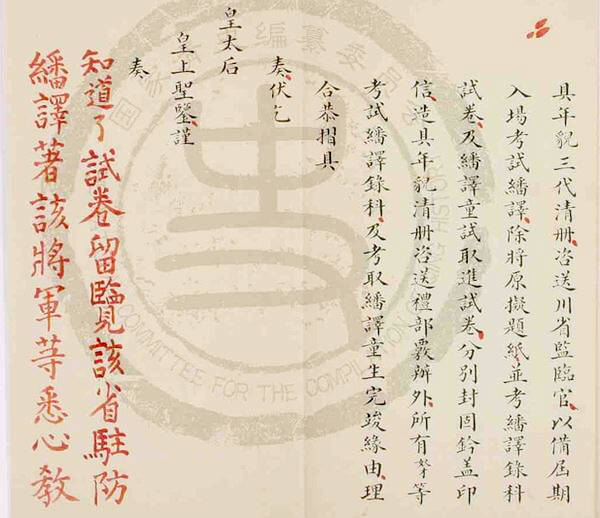 具年貌三代清册咨送川省監臨官以備屆期
入場考試繙譯除將原擬題紙並考繙譯錄科
試卷及繙譯童試取進試卷分別封固鈐盖印
信造具年貌清册咨送禮部覈辦外所有奴才等
考試繙譯錄科及考取繙譯童生完竣緣由理
合恭摺具
奏伏乞
皇太后
皇上聖鑒謹
奏
知道了試卷留覽該省駐防
繙譯著該將軍等悉心教
國家清史編纂委員會
COMMITTEE FOR THE COMPILATION OF QING HISTORY